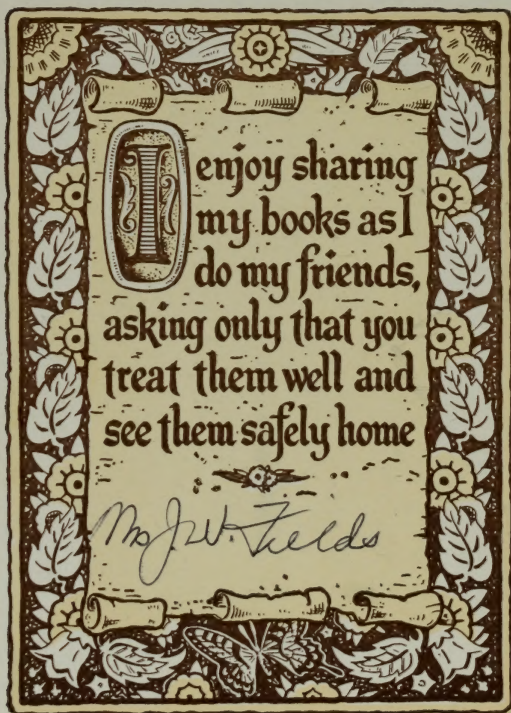 I enjoy sharing
my books as I
do my friends,
asking only that you
treat them well and
see them safely home
Mrs J. W. Fields